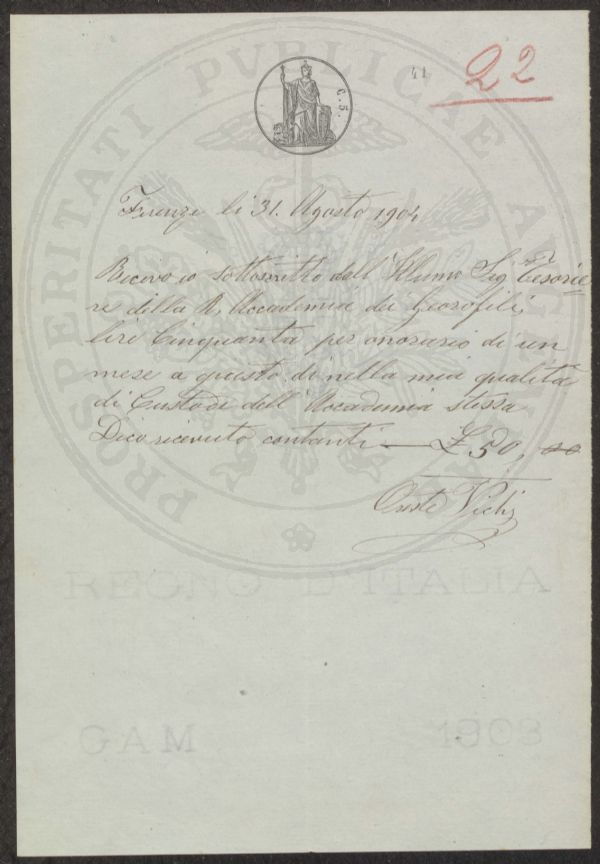 41
22
C. 5.
PROSPERITATI PVBLICAE AVGENDAE
Firenze li 31. Agosto 1904
Ricevo io sottoscritto dall' Illumo Sig Tesorie
re della R. Accademia dei Georofili,
lire Cinquanta per onorario di un
mese a questo dì nella mia qualità
di Custode dell' Accademia stessa
Dico ricevuto contanti — £ 50,00
Oreste Vichi
REGNO D'ITALIA
GAM 1903